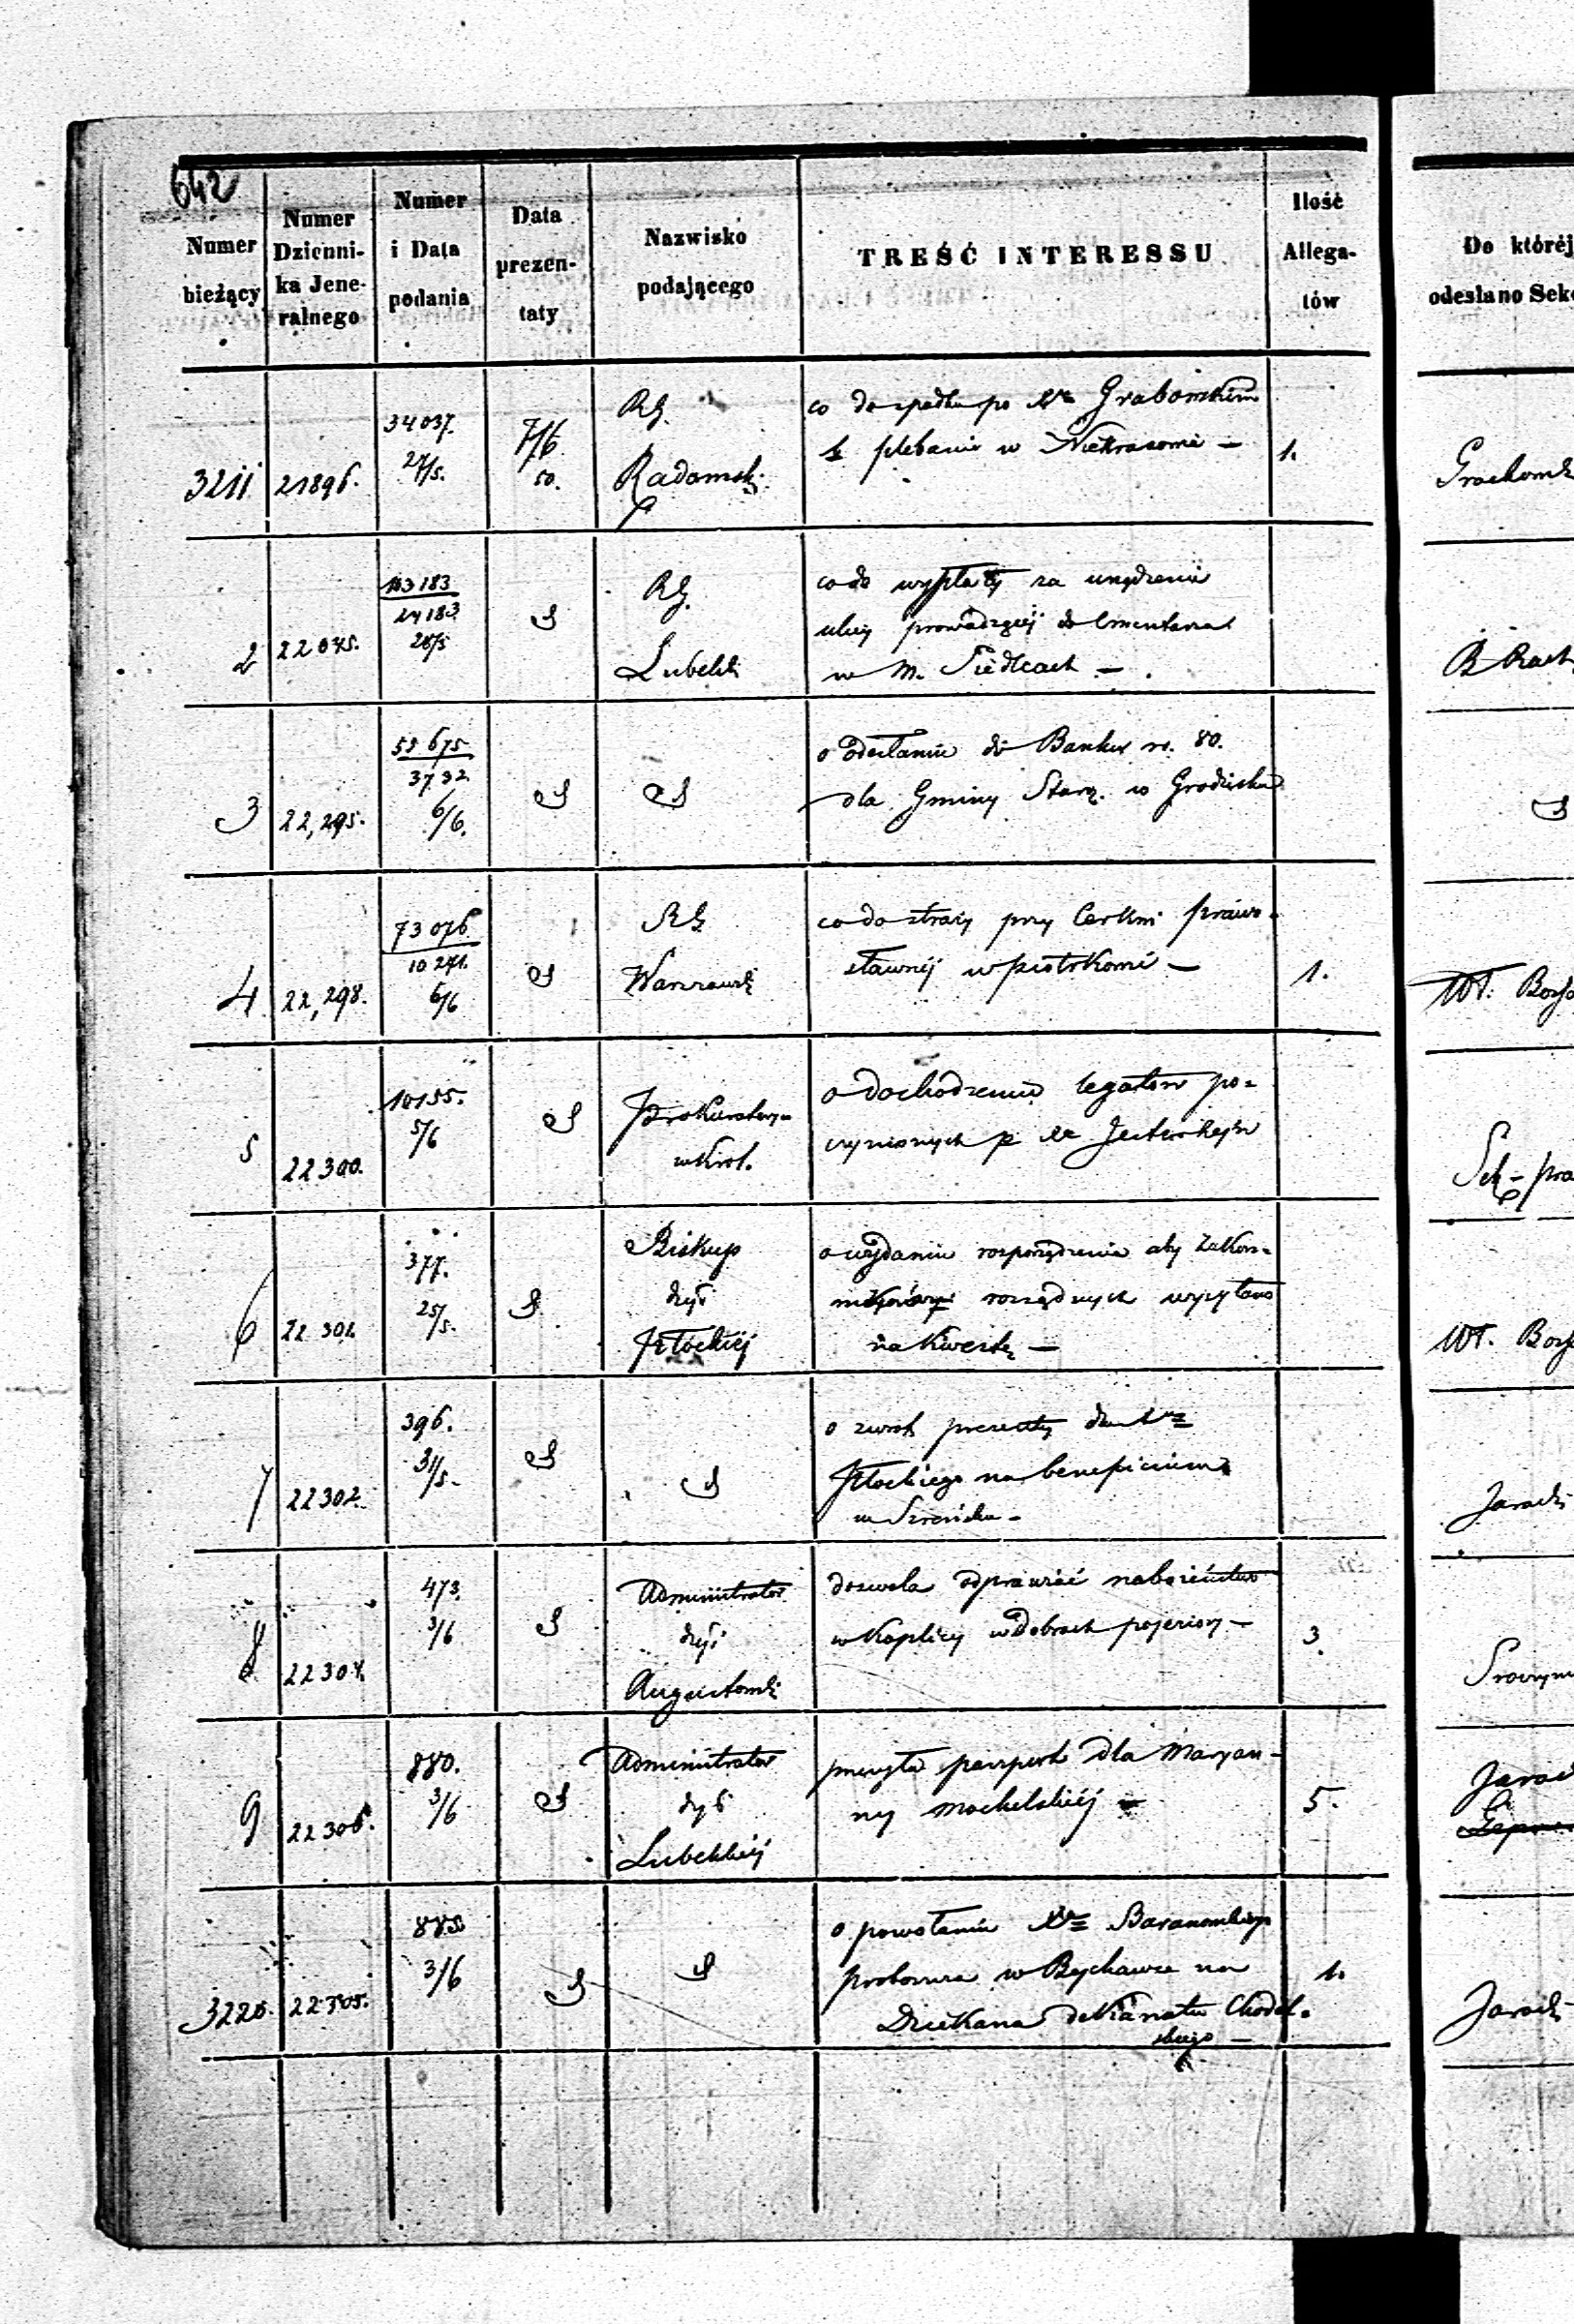 642
Numer
bieżący
Numer
Dzienni-
ka Jene-
ralnego
Numer
i Data
podania
Data
prezen-
taty
Nazwisko
podającego
TREŚĆ INTERESSU
Ilość
Allega-
tów
Do któréj
odesłano Sek
3211
21896.
34037.
27/5.
7/6
50.
RG.
Radomsk.
co do spadku po Xe Grabowskim
plebanie w Niekrasowie —
1.
2
22045.
24183
28/5
RG.
Lubelski
co do wypłaty za urządzenie
ulicy prowadzącej do Cmentarza
w M. Siedlcach —
3
22,295.
55 675
3732
6/6.
o odesłanie do Banku rs. 80.
dla Gminy Staroz. w Grodzisku
4
22,298.
73 076
10 271.
6/6
RG
Warszawski
co do straży przy Cerkwi prawo-
sławnéj w Piotrkowie —
1.
5
22300.
10155.
5/6
Prokuratorya
w Król.
o dochodzeniu legatów po-
czynionych p. Xe
6
22 301
377.
25/5.
Biskup
dyec
Płockiéj
o wydanie rozporządzenia aby Zakon-
ników rozsądnych wysyłano
na kwestę —
7
22302.
396.
31/5.
o zwrot prezenty dla Xa
Płockiego na beneficium
w Szreńsku —
Jaracki
8
22304.
473.
3/6
Administrator
dyec
Augustowski
dozwala odprawiać nabożeństwo
w Kaplicy w dobrach pojeziory —
3
9
22306.
880.
3/6
Administrator
dyec
Lubelskiéj
przesyła paszport dla Maryan-
ny Mochelskiéj
5.
3220.
22305.
885
3/6
o powołanie Xa Baranowskiego
proboszcza w Bychawce na
Dziekana dekanatu Chodel-
skiego —
1.
Jaracki